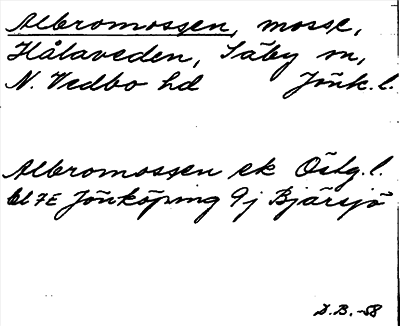 Albromossen, mosse,
Hålaveden, Säby sn,
N. Vedbo hd Jönk.l.
Albromossen ek Östg.l.
bl 7E Jönköping 9j Bjärsjö
D.B.-58